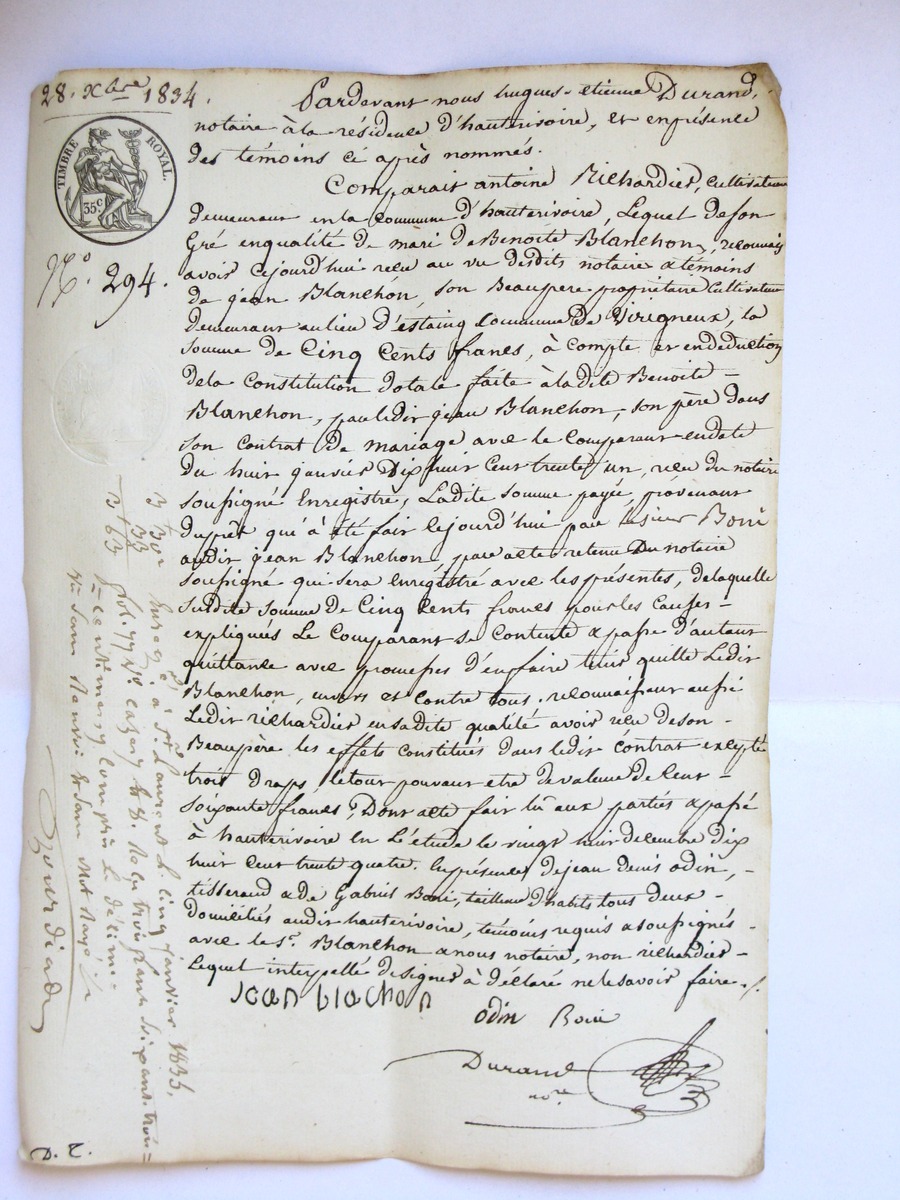 28. Xbre 1834.
TIMBRE ROYAL.
35c
N°. 294.
Pardevant nous hugues-etienne Durand,
notaire à la résidence d'hauterivoire, et en présence
des témoins ci après nommés.
Comparait antoine Richardier, Cultivateur
demeurant en la Commune d'hauterivoire, Lequel de son
Gré en qualité de mari de Benoite Blanchon, reconnais
avoir cejourd'hui reçu au vu desdits notaire & témoins
de jéan Blanchon, son Beaupere propriétaire Cultivateur
demeurant au lieu d'estaing Commune de Virigneux, la
somme de Cinq Cents francs, à Compte et en deduction
de la Constitution dotale faite à ladite Benoite -
Blanchon, par ledit jéan Blanchon, son père dans
son Contrat de mariage avec le Comparant en date
du huit janvier Dix huit Cent trente un, reçu du notaire
soussigné Enregistré, Ladite somme payée, provenant
du prêt qui à été fait cejourd'hui par le sieur Boiri
audit jéan Blanchon, par acte retenu Du notaire
soussigné qui sera Enregistré avec les présentes, de laquelle
susdite somme de Cinq Cents francs pour les Causes -
expliquées Le Comparant se Contente & passe d'autant
quittance avec promesses d'en faire tenir quitte Ledit
Blanchon, envers et contre tous. reconnaissant aussi
Ledit richardier en sadite qualité avoir reçu de son -
Beaupère les effets constitués dans ledit Contrat excepté
trois draps, le tout pouvant etre de valeur de Cent -
soixante francs, Dont acte fait lu aux parties & passé
à hauterivoire En L'étude le vingt huit décembre dix
huit Cent trente quatre. En présence de jean denis odin, -
tisserand & de Gabriel Boiri, tailleur d'habits tous deux -
Domiciliés audit hauterivoire, témoins requis & soussignés
avec le Sr. Blanchon & nous notaire, non richardier -
Lequel interpellé de signer à déclaré ne le savoir faire ./.
jean blachon
odin Boiri
Durand
nore
3 30
33
3 63
Enregé à St Laurent le cinq janvier 1835,
fol. 77 Vo. cazes 7 & 8. Reçu trois francs soixante trois
centimes, compris le décime
D. T.